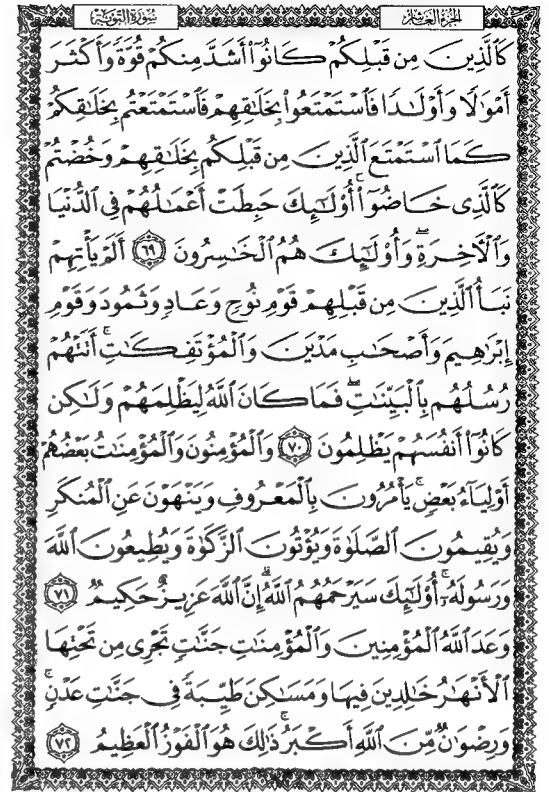 الجزء العاشر
سورة التوبة
كَالَّذِينَ مِن قَبْلِكُمْ كَانُوٓا۟ أَشَدَّ مِنكُمْ قُوَّةً وَأَكْثَرَ
أَمْوَٰلًا وَأَوْلَٰدًا فَٱسْتَمْتَعُوا۟ بِخَلَٰقِهِمْ فَٱسْتَمْتَعْتُم بِخَلَٰقِكُمْ
كَمَا ٱسْتَمْتَعَ ٱلَّذِينَ مِن قَبْلِكُم بِخَلَٰقِهِمْ وَخُضْتُمْ
كَٱلَّذِى خَاضُوٓا۟ ۚ أُو۟لَٰٓئِكَ حَبِطَتْ أَعْمَٰلُهُمْ فِى ٱلدُّنْيَا
وَٱلْءَاخِرَةِ ۖ وَأُو۟لَٰٓئِكَ هُمُ ٱلْخَٰسِرُونَ ٦٩ أَلَمْ يَأْتِهِمْ
نَبَأُ ٱلَّذِينَ مِن قَبْلِهِمْ قَوْمِ نُوحٍ وَعَادٍ وَثَمُودَ وَقَوْمِ
إِبْرَٰهِيمَ وَأَصْحَٰبِ مَدْيَنَ وَٱلْمُؤْتَفِكَٰتِ ۚ أَتَتْهُمْ
رُسُلُهُم بِٱلْبَيِّنَٰتِ ۖ فَمَا كَانَ ٱللَّهُ لِيَظْلِمَهُمْ وَلَٰكِن
كَانُوٓا۟ أَنفُسَهُمْ يَظْلِمُونَ ٧٠ وَٱلْمُؤْمِنُونَ وَٱلْمُؤْمِنَٰتُ بَعْضُهُمْ
أَوْلِيَآءُ بَعْضٍ ۚ يَأْمُرُونَ بِٱلْمَعْرُوفِ وَيَنْهَوْنَ عَنِ ٱلْمُنكَرِ
وَيُقِيمُونَ ٱلصَّلَوٰةَ وَيُؤْتُونَ ٱلزَّكَوٰةَ وَيُطِيعُونَ ٱللَّهَ
وَرَسُولَهُۥٓ ۚ أُو۟لَٰٓئِكَ سَيَرْحَمُهُمُ ٱللَّهُ ۗ إِنَّ ٱللَّهَ عَزِيزٌ حَكِيمٌ ٧١
وَعَدَ ٱللَّهُ ٱلْمُؤْمِنِينَ وَٱلْمُؤْمِنَٰتِ جَنَّٰتٍ تَجْرِى مِن تَحْتِهَا
ٱلْأَنْهَٰرُ خَٰلِدِينَ فِيهَا وَمَسَٰكِنَ طَيِّبَةً فِى جَنَّٰتِ عَدْنٍ ۚ
وَرِضْوَٰنٌ مِّنَ ٱللَّهِ أَكْبَرُ ۚ ذَٰلِكَ هُوَ ٱلْفَوْزُ ٱلْعَظِيمُ ٧٢